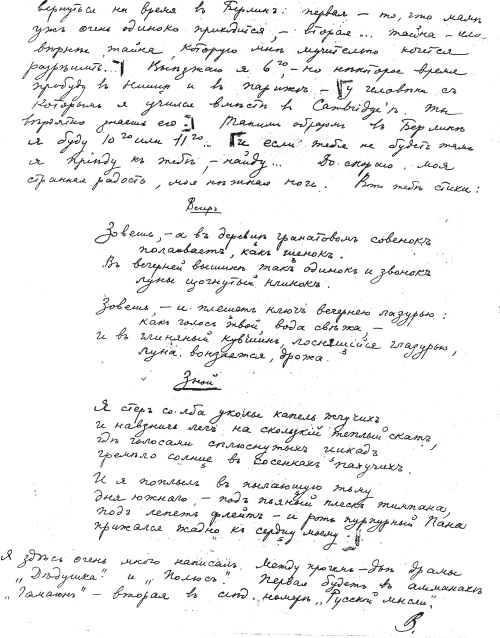 вернуться на время в Берлинъ: первая – то, что мамѣ
ужъ очень одиноко приходится, – вторая... тайна – или
вѣрнѣе, тайна которую мнѣ мучительно хочется
разрѣшить... Выѣзжаю я 6го, – но нѣкоторое время
пробуду въ Ниццѣ и въ Парижѣ – у человѣка съ
которымъ я учился вмѣстѣ въ Cambridge'ѣ. Ты
вѣроятно знаешь его. Такимъ образомъ въ Берлинѣ
я буду 10го или 11го... И если тебя не будетъ тамъ
я приду къ тебѣ, – найду... До скораго моя
странная радость, моя нѣжная ночь. Вотъ тебѣ стихи:
Вечеръ
Зовешь, – а въ деревцѣ гранатовомъ совенокъ
полаиваетъ, какъ щенокъ.
Въ вечерней вышинѣ такъ одинокъ и звонокъ
луны изогнутый клинокъ.
Зовешь, – и плещетъ ключъ вечернею лазурью:
какъ голосъ твой, вода свѣжа, –
и въ глиняный кувшинъ, лоснящійся глазурью,
луна вонзается, дрожа.
Зной
Я стеръ со лба укольѣ капель жгучихъ
и навзничь легъ на скользкій теплый скатъ,
гдѣ голосами сплюснутыхъ цикадъ
гремѣло солнце въ сосенкахъ пахучихъ.
И я поплылъ въ пылающую тьму
дня южнаго, – подъ пьяный плескъ тимпана,
подъ лепетъ флейтъ – и ротъ пурпурный Пана
прижался жадно къ сердцу моему.
Я здѣсь очень много написалъ. Между прочимъ – двѣ драмы
„Дѣдушка" и „Полюсъ". Первая будетъ въ альманахѣ
„Гамаюнъ" – вторая въ слѣд. номерѣ „Русской мысли".
В.